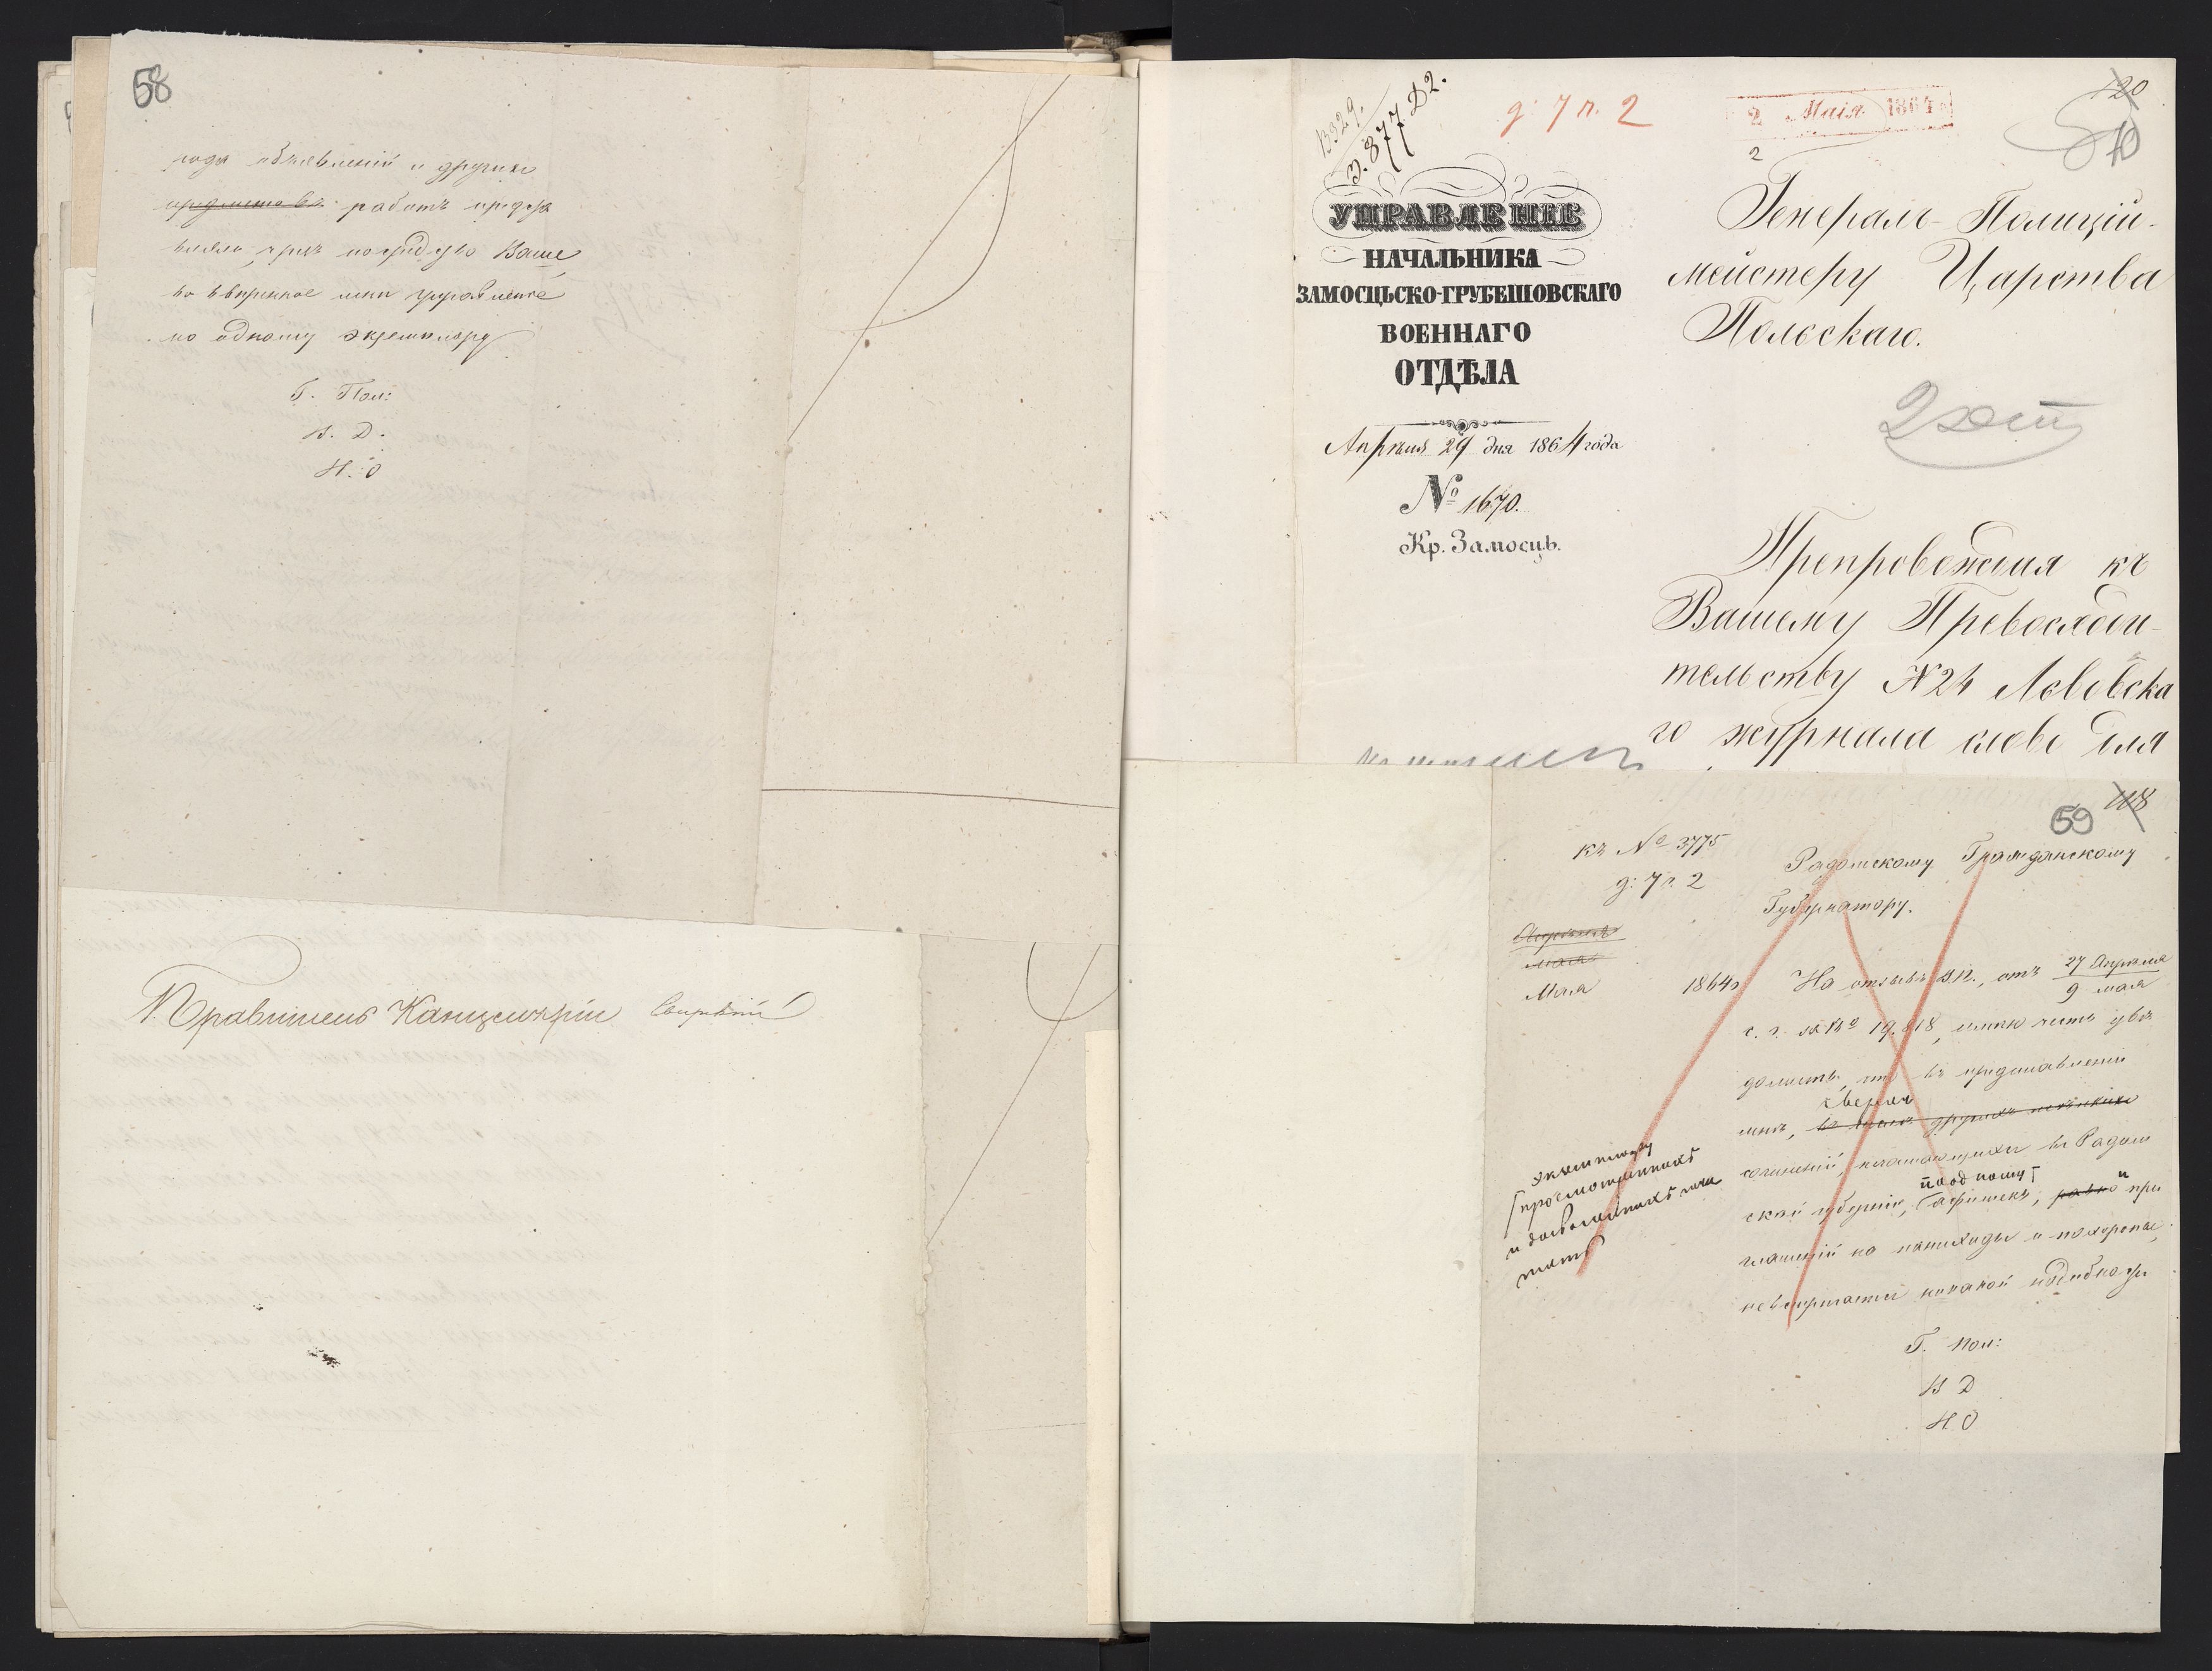 58
рода объявленій и другихъ
предметовъ работъ предста
влялъ чрезъ посредство Ваше
во ввѣренное мнѣ управленіе
по одному экземпляру
Г. Пол:
В. Д.
Н. О
Правитель Канцеляріи
13329.
Э. 877. Д2.
д: 7 п. 2
2 Маія 1864
2
120
УПРАВЛЕНІЕ
НАЧАЛЬНИКА
ЗАМОСЦЬСКО-ГРУБЕШОВСКАГО
ВОЕННАГО
ОТДѢЛА
Апрѣля 29 дня 1864 года
№ 1670.
Кр. Замосць.
Генералъ-Полицій-
мейстеру Царства
Польскаго.
Препровождая къ
Вашему Превосходи-
тельству №24 Львовска
го журнала слово для
59 118
къ № 3775
д: 7 п. 2
Апрѣля
мая
Мая 1864
Радомскому Гражданскому
Губернатору.
На отзывъ В.П., отъ 27 Апрѣля
9 мая
с. г. за № 19.818, имѣю честь увѣ
домить, что въ представленіи
сверхъ
мнѣ,
сочиненій, печатающихся въ Радом
по одному
ской губерніи, афишекъ, равно и при
глашеній на панихиды и похороны,
не встрѣчается никакой надобности
экземпляру
просмотренныхъ
и дозволенныхъ къ
Г. Пол:
В Д
Н О